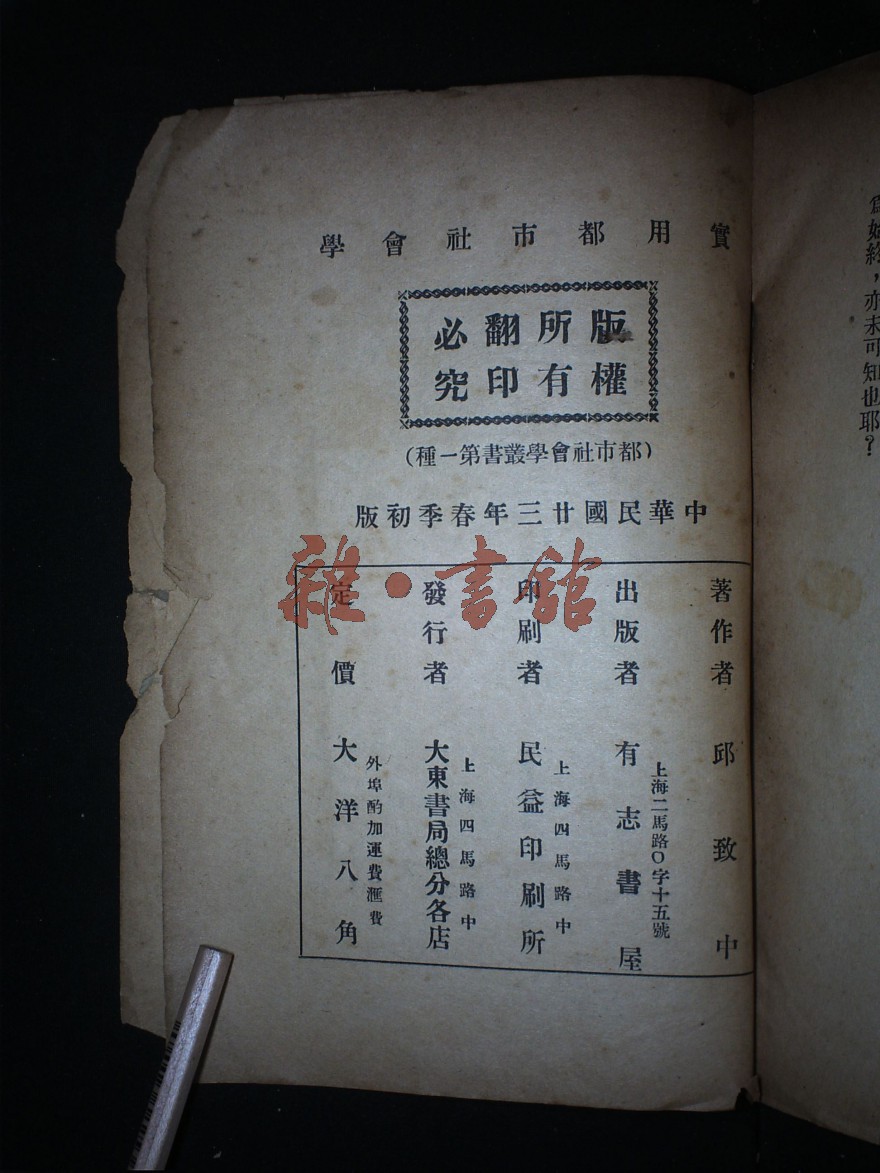 爲始終，亦未可知也耶？
實用都市社會學
版權所有翻印必究
（都市社會學叢書第一種）
中華民國廿三年春季初版
著作者 邱致中
上海二馬路〇字十五號
出版者 有志書屋
上海四馬路中
印刷者 民益印刷所
上海四馬路中
發行者 大東書局總分各店
外埠酌加運費滙費
定價 大洋八角
雜·書館